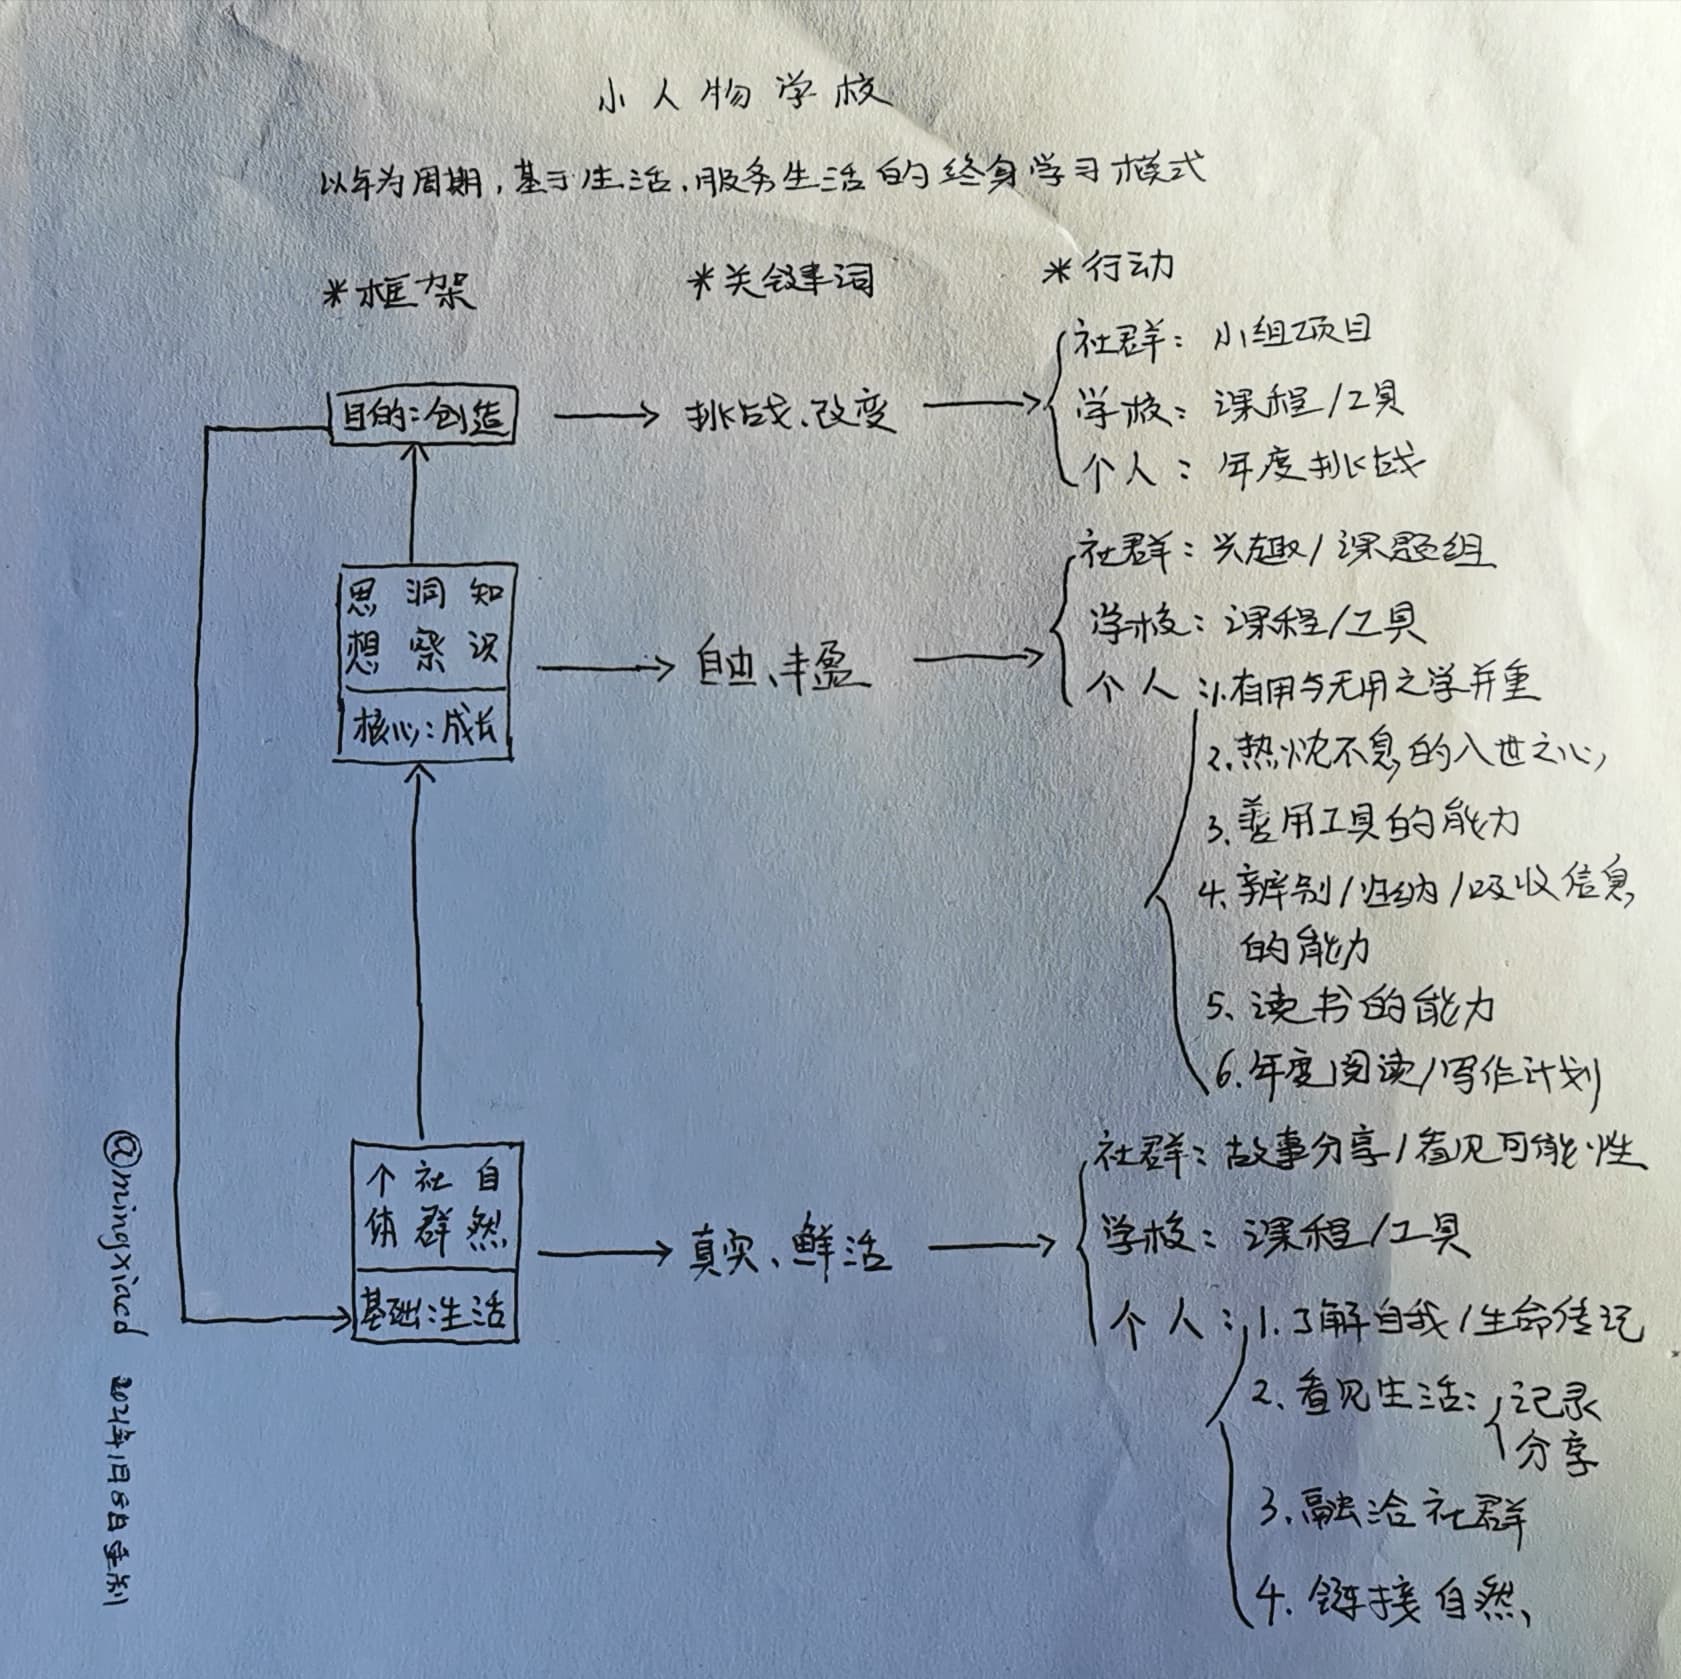 小人物学校
以年为周期,基于生活、服务生活的终身学习模式
*框架
*关键词
*行动
目的:创造
挑战、改变
社群: 小组项目
学校: 课程/工具
个人: 年度挑战
思想 洞察 知识
核心:成长
自由、丰盈
社群: 兴趣/课题组
学校: 课程/工具
个人: 1.有用与无用之学并重
2.热忱不息的入世之心,
3.善用工具的能力
4.辨别/归纳/吸收信息
的能力
5、读书的能力
6.年度阅读/写作计划
个体 社群 自然
基础:生活
真实、鲜活
社群: 故事分享/看见可能性
学校: 课程/工具
个人: 1.了解自我/生命传记
2、看见生活: 记录
分享
3、融洽社群
4.链接自然、
@mingxiacd 2021年1月8日